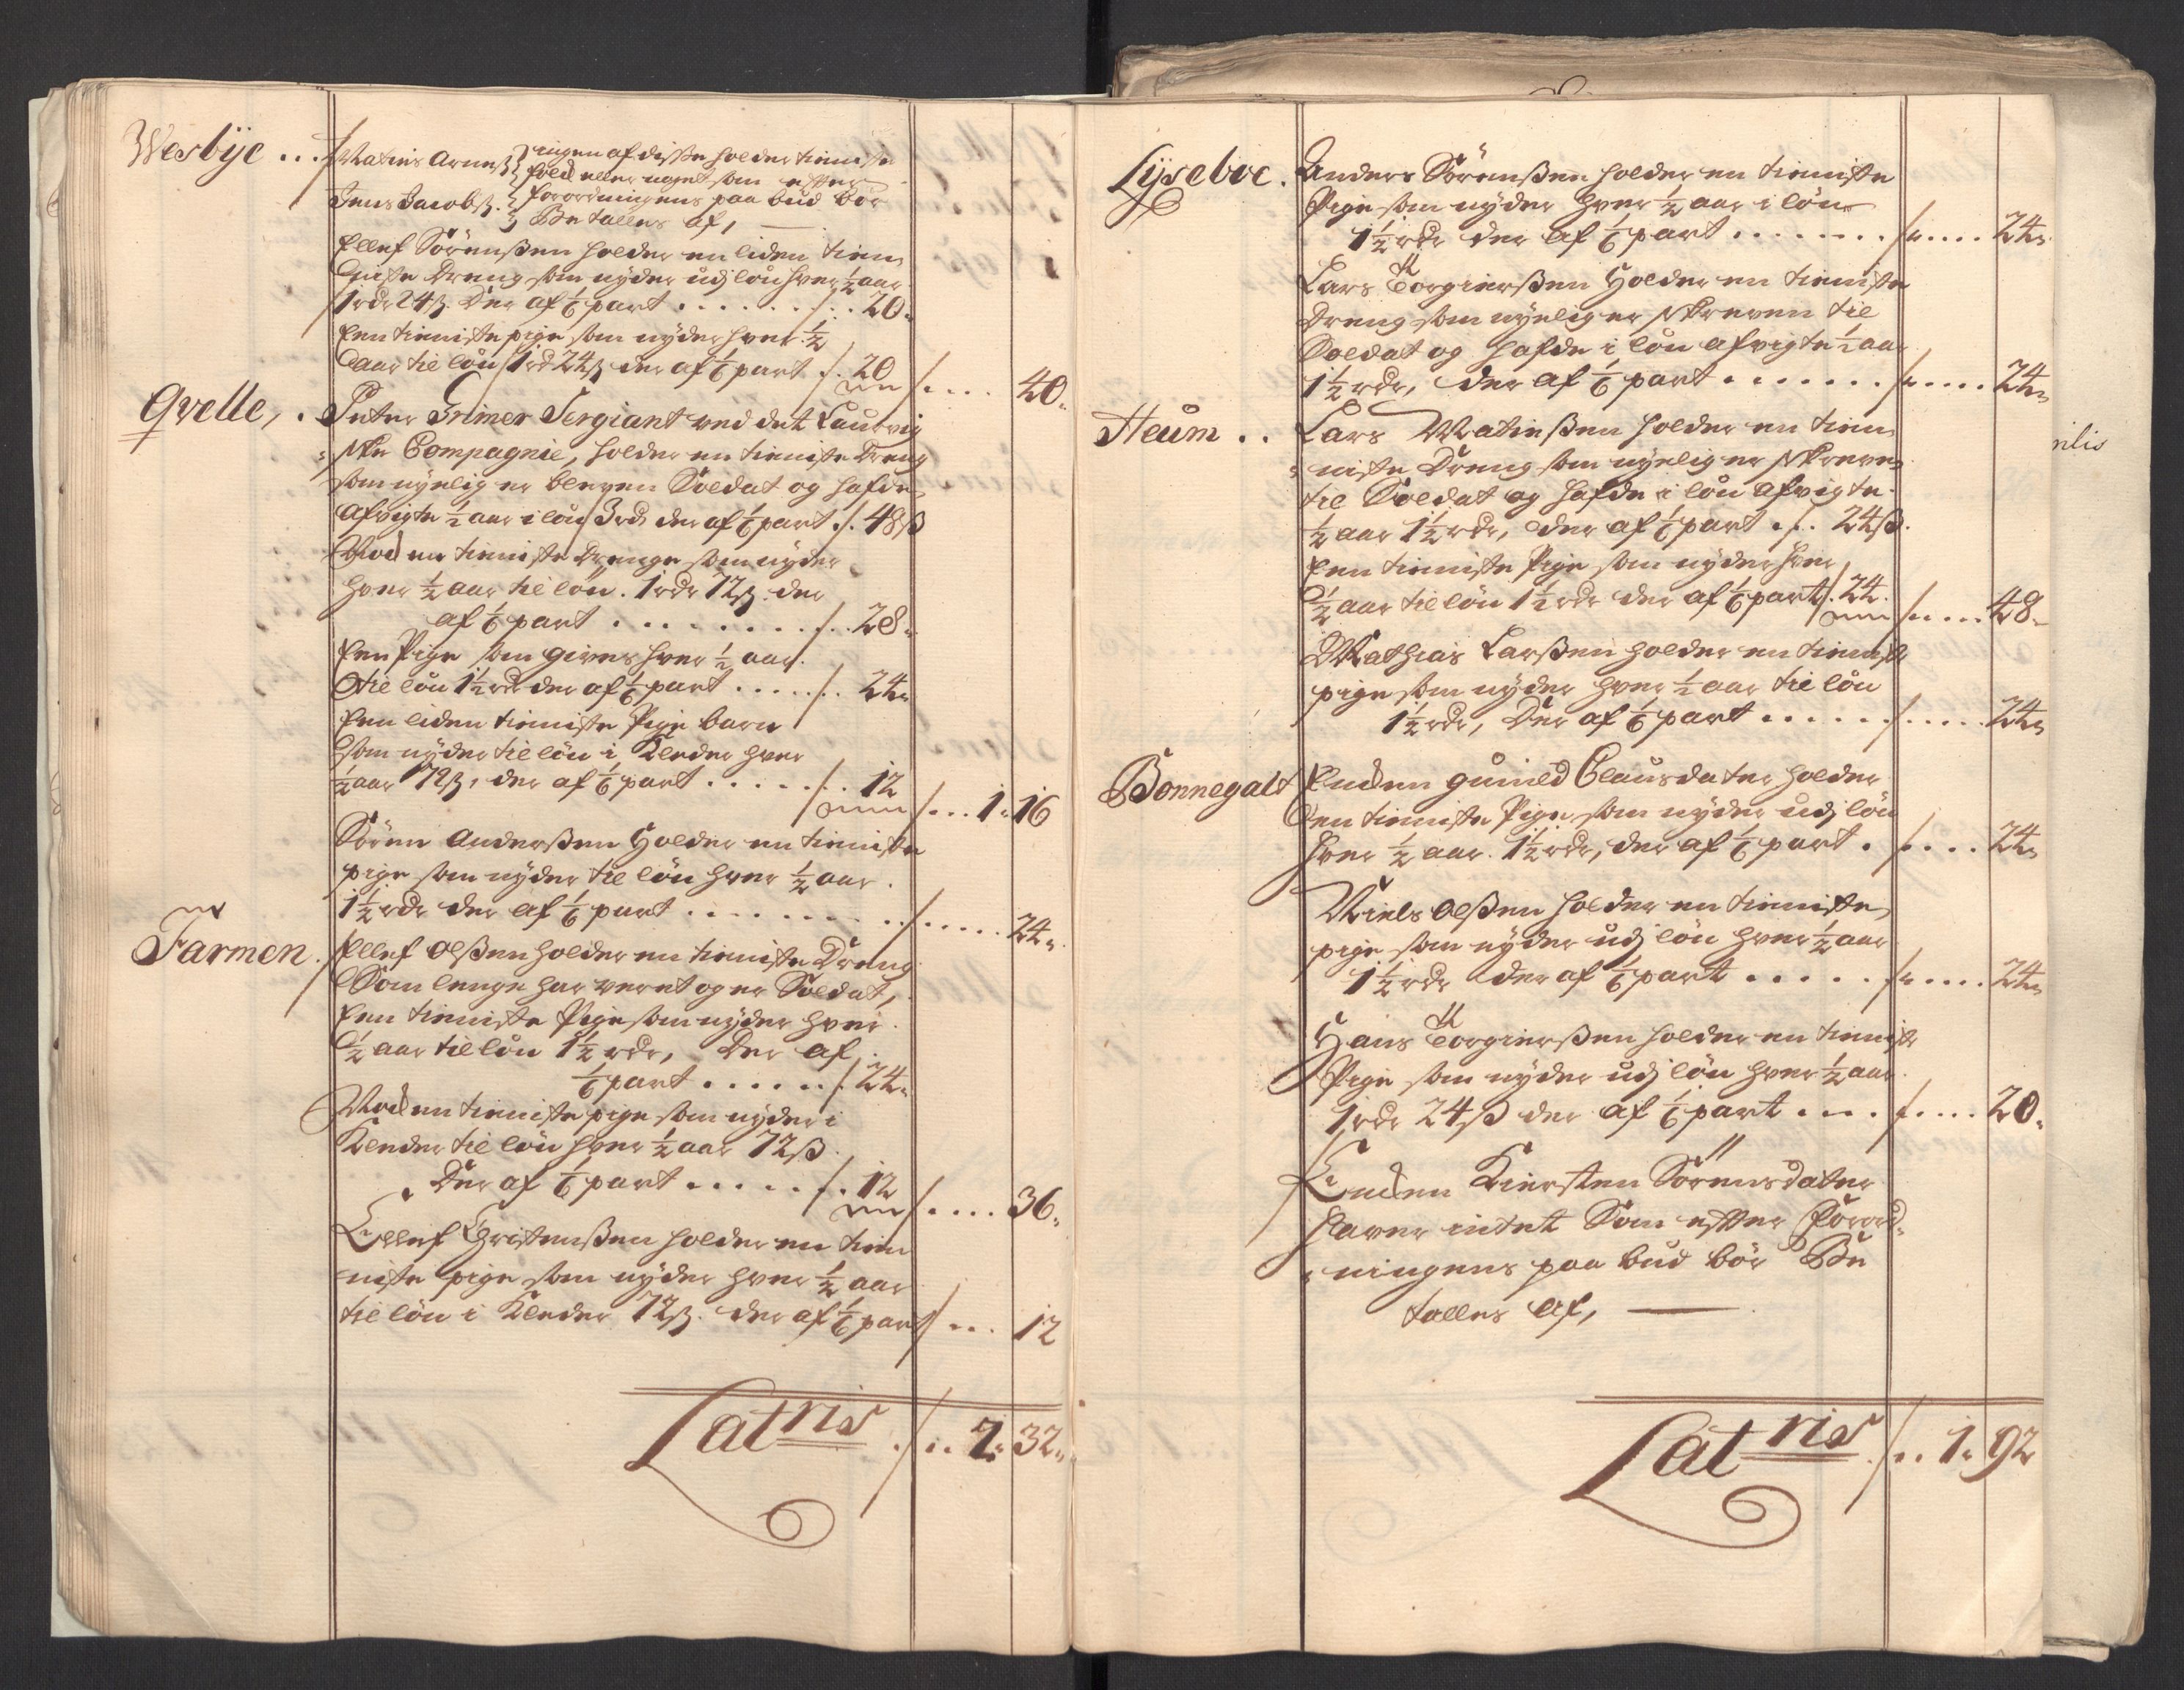 Wesbÿe ... Matias Arneß. } ingen af disße holder tieniste
folck eller noget som efter
Jens Jacobß. } forordningens paa bud bør
Be talles af,
Ellef Sörenßen holder en liden tien
niste Dreng som nyder udj lön hver ½ aar
1 rdr 24ß. Der af 1/6 part ....... 20„
Een tieniste pige som nyder hver ½
aar til lön 1 rd 24ß der af 1/6 part /. 20 /.... 40„
Qvelle, . Peter Grimer Sergiant ved det Laurvig
„ske Compagnie, holder en tieniste Dreng
som nyelig er bleven Soldat og hafde
afvigte ½ aar i lön 3 rd, der af 1/6 part /. 48ß
Nock en tieniste Drenge som nyder
hver ½ aar til lön. 1 rdr 72ß. der
af 1/6 part ......... /.. 28„
Een Pige som gives hver ½ aar.
til lön 1½ rdr der af 1/6 part ....... 24„
Een liden tieniste Pige barn
som nyder til lön i Kleder hver
½ aar 72ß, der af 1/6 part ...... /.. 12 /... 1„ 16
Sören Anderßen Holder en tieniste
pige som nyder til lön hver ½ aar.
1½ rdr der af 1/6 part .......... /..... 24„
Farmen. Ellef Olßen holder en tieniste Dreng
Som lenge har veret og er Soldat,
Een tieniste Pige som nyder hver
½ aar til lön 1½ rdr, Der af
1/6 part ...... /. 24„
Nock en tieniste pige som nyder i
Kleder til lön hver ½ aar 72ß
Der af 1/6 part ...... /.. 12 /.... 36„
Ellef Christenßen holder en tien
niste pige som nyder hver ½ aar
til lön i Kleder 72ß. der af 1/6 part /... 12
Latris /.. 2„ 32„
Lÿseboe. Anders Sörenßen holder en tieniste
Pige som nyder hver ½ aar i lön
1½ rdr der af 1/6 part ........ /..... 24„
Lars Torgierßen Holder en tieniste
Dreng som nyelig er skreven til
Soldat og hafde i lön afvigte ½ aar
1½ rdr, der af 1/6 part ....... /..... 24„
Heum .. Lars Matießen holder en tien
„niste Dreng som nyelig er skreven
til Soldat og hafde i lön afvigte
½ aar 1½ rdr, der af 1/6 part ./. 24ß.
Een tieniste Pige som nyder hver
½ aar til lön 1½ rdr der af 1/6 part /. 24. /..... 48„
Mathias Larßen holder en tieniste
pige som nyder hver ½ aar til lön
1½ rdr, Der af 1/6 part ...... /..... 24„
Bonnegalt Encken gunild Clausdater holder
en tieniste Pige som nyder udj lön
hver ½ aar. 1½ rdr, der af 1/6 part . /.... 24„
Niels Olßen holder en tieniste
pige som nyder udj lön hver ½ aar
1½ rdr der af 1/6 part ..... /..... 24„
Hans Torgierßen holder en tieniste
Pige som nyder udj lön hver ½ aar.
1 rdr 24ß der af 1/6 part .... /.... 20„
Encken Kiersten Sörensdater
haver intet Som efter Forord„
„ningens paa bud bör Be
talles af,
Latris /.. 1„ 92